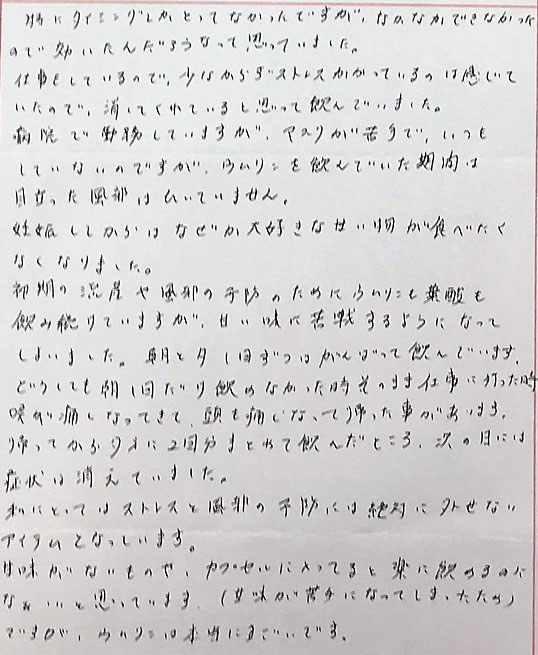 特にタイミングしかとってなかったですが、なかなかできなかった
ので効いたんだろうなって思っていました。
仕事をしているので、少なからずストレスかかっているのは感じて
いたので、消してくれていると思って飲んでいました。
病院で勤務していますが、マスクが苦手で、いつも
していないのですが、ウムリンを飲んでいた期間は
目立った風邪はひいていません。
妊娠してからはなぜか大好きな甘い物が食べたく
なくなりました。
初期の流産や風邪の予防のためにウムリンも葉酸も
飲み続けていますが、甘い味に苦戦するようになって
しまいました。朝と夕1回ずつはがんばって飲んでいます。
どうしても朝1回だけ飲めなかった時そのまま仕事に行った時
喉が痛くなってきて、頭も痛くなって帰った事があります。
帰ってから夕方に2回分まとめて飲んだところ、次の日には
症状は消えていました。
私にとってはストレスと風邪の予防には絶対に外せない
アイテムとなっています。
甘味がないものや、カプセルに入ってると楽に飲めるのに
なぁ…いと思っています。(甘味が苦手になってしまったため)
ですが、ウムリンは本当にすごいです。